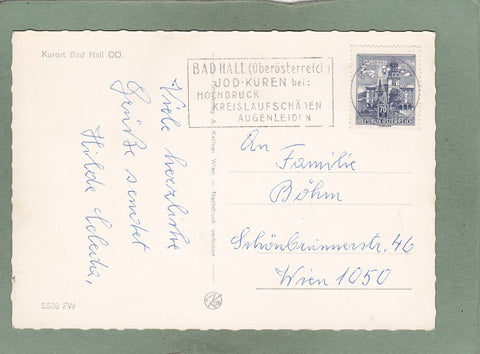 Kurort Bad Hall OÖ.
Viele herzliche
Grüße sendet
Hilde
5536 FW
A. Kellner, Wien. — Nachdruck verboten
BAD HALL (Oberösterreich)
JOD-KUREN bei:
HOCHDRUCK
KREISLAUFSCHÄDEN
AUGENLEIDEN
70
REPUBLIK ÖSTERREICH
An
Familie
Böhm
Schönbrunnerstr. 46
Wien 1050